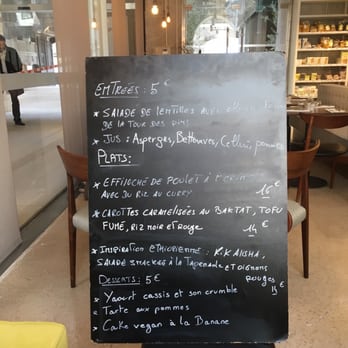 ENTREES : 5 €
* SALADE DE LENTILLES AVEC
DE LA TOUR DES PINS
* JUS : Asperges, Betteraves, Céleri, pommes
PLATS :
* EFFILOCHÉ DE POULET À
AVEC DU RIZ AU CURRY 16 €
* CAROTTES CARAMELISÉES AU BAKTAT, TOFU
FUMÉ, RIZ NOIR ET ROUGE 14 €
* INSPIRATION ETHIOPIENNE : KIK ALISHA,
SALADE À LA TAPENADE ET OIGNONS
ROUGES
15 €
DESSERTS : 5 €
* Yaourt cassis et son crumble
* Tarte aux pommes
* Cake vegan à la Banane